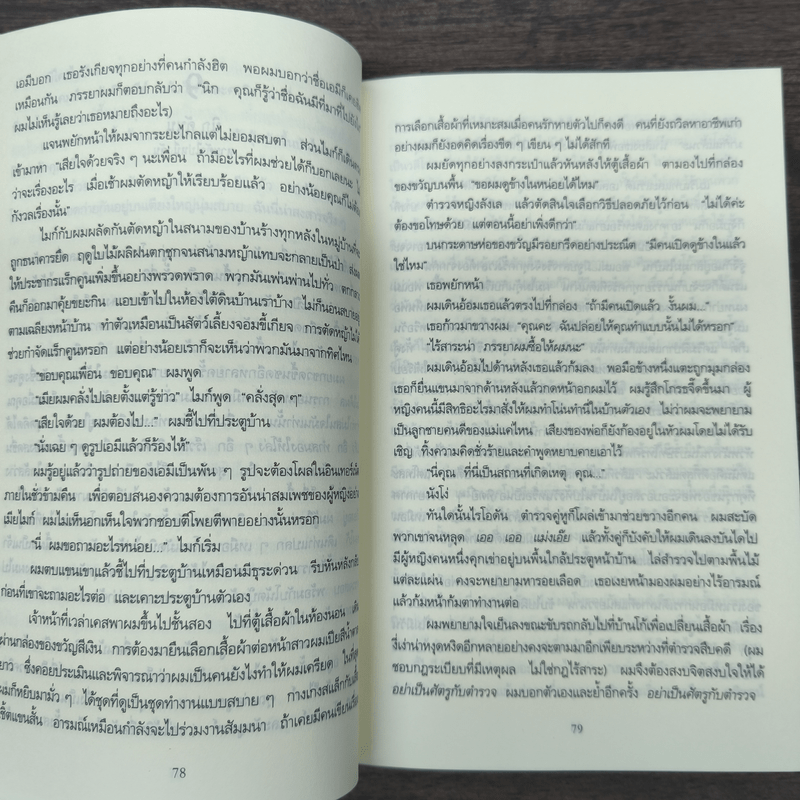 เอมีบอก เธอรังเกียจทุกอย่างที่คนกำลังฮิต พอผมบอกว่าชื่อเอมีก็
เหมือนกัน ภรรยาผมก็ตอบกลับว่า “นิก คุณก็รู้ว่าชื่อฉันมีที่มาที่ไป
ผมไม่เห็นรู้เลยว่าเธอหมายถึงอะไร)
แจนพยักหน้าให้ผมจากระยะไกลแต่ไม่ยอมสบตา ส่วนไมก์ก็เดิน
เข้ามาหา “เสียใจด้วยจริง ๆ นะเพื่อน ถ้ามีอะไรที่ผมช่วยได้ก็บอกเลยนะ
ว่าจะเรื่องอะไร เมื่อเช้าผมตัดหญ้าให้เรียบร้อยแล้ว อย่างน้อยคุณก็ไม่
กังวลเรื่องนั้น”
ไมก์กับผมผลัดกันตัดหญ้าในสนามของบ้านร้างทุกหลังในหมู่บ้านที่
ถูกธนาคารยึด ฤดูใบไม้ผลิฝนตกชุกจนสนามหญ้าแทบจะกลายเป็นป่า
ให้ประชากรแร็กคูนเพิ่มขึ้นอย่างพรวดพราด พวกมันเพ่นพ่านไปทั่ว
คืนก็ออกมาคุ้ยขยะกิน แอบเข้าไปในห้องใต้ดินบ้านเราบ้าง ไม่ก็นอน
ตามเฉลียงหน้าบ้าน ทำตัวเหมือนเป็นสัตว์เลี้ยงจอมขี้เกียจ การตัดหญ้าไม่
ช่วยกำจัดแร็กคูนหรอก แต่อย่างน้อยเราก็จะเห็นว่าพวกมันมาจากทิศไหน
“ขอบคุณเพื่อน ขอบคุณ” ผมพูด
“เมียผมคลั่งไปเลยตั้งแต่รู้ข่าว” ไมก์พูด “คลั่งสุด ๆ”
“เสียใจด้วย ผมต้องไป...” ผมชี้ไปที่ประตูบ้าน
“นั่งเฉย ๆ ดูรูปเอมีแล้วก็ร้องไห้”
ผมรู้อยู่แล้วว่ารูปถ่ายของเอมีเป็นพัน ๆ รูปจะต้องโผล่ในอินเทอร์เน็ต
ภายในชั่วข้ามคืน เพื่อตอบสนองความต้องการอันน่าสมเพชของผู้หญิงอย่าง
เมียไมก์ ผมไม่เห็นอกเห็นใจพวกชอบตีโพยตีพายอย่างนั้นหรอก
“นี่ ผมขอถามอะไรหน่อย...” ไมก์เริ่ม
ผมตบแขนเขาแล้วชี้ไปที่ประตูบ้านเหมือนมีธุระด่วน รีบหันหลัง
ก่อนที่เขาจะถามอะไรต่อ และเคาะประตูบ้านตัวเอง
เจ้าหน้าที่เวลาเคสพาผมขึ้นไปชั้นสอง ไปที่ตู้เสื้อผ้าในห้องนอน
ผ่านกล่องของขวัญสีเงิน การต้องมายืนเลือกเสื้อผ้าต่อหน้าสาวผมเปียสีน้ำตาล
ยาว ซึ่งคอยประเมินและพิจารณาว่าผมเป็นคนยังไงทำให้ผมเครียด
ผมก็หยิบมามั่ว ๆ ได้ชุดที่ดูเป็นชุดทำงานแบบสบาย ๆ กางเกงสแล็กกับ
เชิ้ตแขนสั้น อารมณ์เหมือนกำลังจะไปร่วมงานสัมมนา ถ้าเคยมีคนเขียน
78
การเลือกเสื้อผ้าที่เหมาะสมเมื่อคนรักหายตัวไปก็คงดี คนที่ยังถวิลหาอาชีพเก่า
อย่างผมก็ยังอดคิดเรื่องขีด ๆ เขียน ๆ ไม่ได้สักที
ผมยัดทุกอย่างลงกระเป๋าแล้วหันหลังให้ตู้เสื้อผ้า ตามองไปที่กล่อง
ของขวัญบนพื้น “ขอผมดูข้างในหน่อยได้ไหม”
ตำรวจหญิงลังเล แล้วตัดสินใจเลือกวิธีปลอดภัยไว้ก่อน “ไม่ได้ค่ะ
ต้องขอโทษด้วย แต่ตอนนี้อย่าเพิ่งดีกว่า”
บนกระดาษห่อของขวัญมีรอยกรีดอย่างประณีต “มีคนเปิดดูข้างในแล้ว
ใช่ไหม”
เธอพยักหน้า
ผมเดินอ้อมเธอแล้วตรงไปที่กล่อง “ถ้ามีคนเปิดแล้ว งั้นผม...”
เธอก้าวมาขวางผม “คุณคะ ฉันปล่อยให้คุณทำแบบนั้นไม่ได้หรอก”
“ไร้สาระน่า ภรรยาผมซื้อให้ผมนะ”
ผมเดินอ้อมไปด้านหลังเธอแล้วก้มลง พอมือข้างหนึ่งแตะถูกมุมกล่อง
เธอก็ยื่นแขนมาจากด้านหลังแล้วกดหน้าอกผมไว้ ผมรู้สึกโกรธจี๊ดขึ้นมา ผู้
หญิงคนนี้มีสิทธิอะไรมาสั่งให้ผมทำโน่นทำนี่ในบ้านตัวเอง ไม่ว่าผมจะพยายาม
เป็นลูกชายคนดีของแม่แค่ไหน เสียงของพ่อก็ยังก้องอยู่ในหัวผมโดยไม่ได้รับ
เชิญ ทิ้งความคิดชั่วร้ายและคำพูดหยาบคายเอาไว้
“นี่คุณ ที่นี่เป็นสถานที่เกิดเหตุ คุณ...”
นังโง่
ทันใดนั้นไรโอดัน ตำรวจคู่หูก็โผล่เข้ามาช่วยขวางอีกคน ผมสะบัด
พวกเขาจนหลุด เออ เออ แม่งเอ๊ย แล้วทั้งคู่ก็บังคับให้ผมเดินลงบันไดไป
มีผู้หญิงคนหนึ่งคุกเข่าอยู่บนพื้นใกล้ประตูหน้าบ้าน ไล่สำรวจไปตามพื้นไม้
แต่ละแผ่น คงจะพยายามหารอยเลือด เธอเงยหน้ามองผมอย่างไร้อารมณ์
แล้วก้มหน้าก้มตาทำงานต่อ
ผมพยายามใจเย็นลงขณะขับรถกลับไปที่บ้านโก้เพื่อเปลี่ยนเสื้อผ้า เรื่อง
งี่เง่าน่าหงุดหงิดอีกหลายอย่างคงจะตามมาอีกเพียบระหว่างที่ตำรวจสืบคดี (ผม
ชอบกฎระเบียบที่มีเหตุผล ไม่ใช่กฎไร้สาระ) ผมจึงต้องสงบจิตสงบใจให้ได้
อย่าเป็นศัตรูกับตำรวจ ผมบอกตัวเองและย้ำอีกครั้ง อย่าเป็นศัตรูกับตำรวจ
79